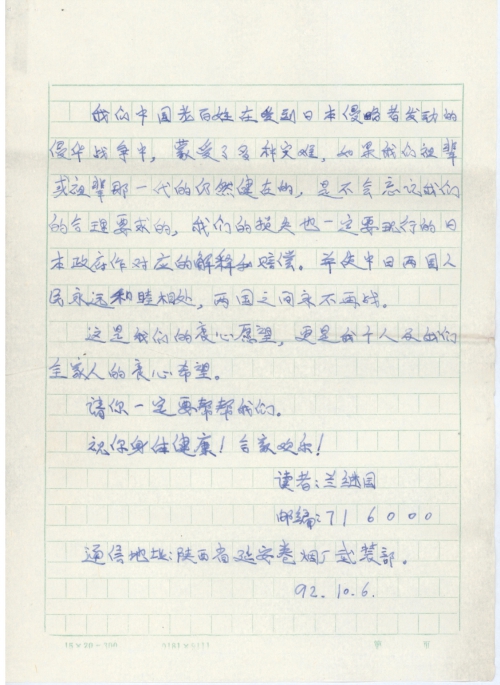 我们中国老百姓在受到日本侵略者发动的
侵华战争中，蒙受了各种灾难，如果我们祖辈
或祖辈那一代的仍然健在的，是不会忘记我们
的合理要求的，我们的损失也一定要现行的日
本政府作对应的解释和赔偿。并使中日两国人
民永远和睦相处，两国之间永不再战。
这是我们的衷心愿望，更是我个人及我们
全家人的衷心希望。
请你一定要帮帮我们。
祝你身体健康！合家欢乐！
读者：兰继国
邮编：716000
通信地址：陕西省延安卷烟厂武装部。
92.10.6.